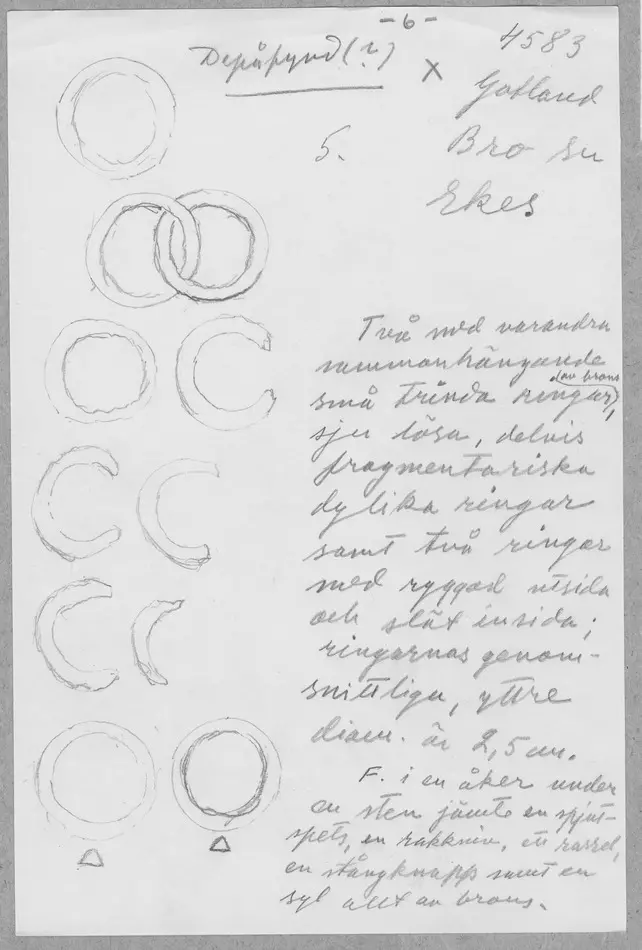 -6-
Depåfynd (?)
x
4583
Gotland
Bro sn
Ekes
5.
Två med varandra
sammanhängande
små trinda ringar (av brons),
sju lösa, delvis
fragmentariska
dylika ringar
samt två ringar
med ryggad utsida
och slät insida;
ringarnas genom-
snittliga, yttre
diam. är 2,5 cm.
F. i en åker under
en sten jämte en spjut-
spets, en rakkniv, ett rassel,
en stångknapp samt en
syl allt av brons.